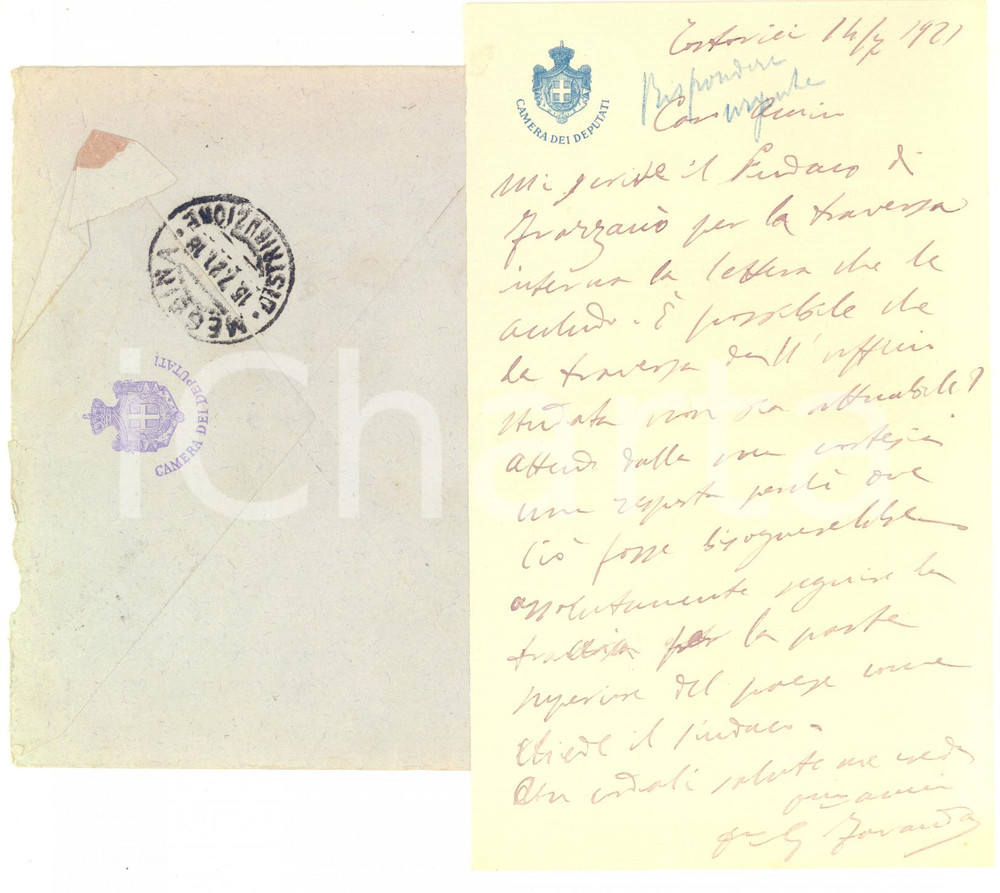 Tortorici 14/7 1921
Rispondere
urgente
CAMERA DEI DEPUTATI
Caro Amico
Mi scrive il Sindaco di
Frazzanò per la traversa
interna la lettera che le
accludo. È possibile che
la traversa dall'ufficio
studata non sia attuabile?
Attendo dalla sua cortesia
una risposta perchè ove
ciò fosse bisognerebbe
assolutamente seguire la
per la parte
superiore del paese come
chiede il sindaco.
Con cordiali saluti mi creda
amico
MESSINA
DISTRIBUZIONE
15.7.21.18
CAMERA DEI DEPUTATI
iCharta